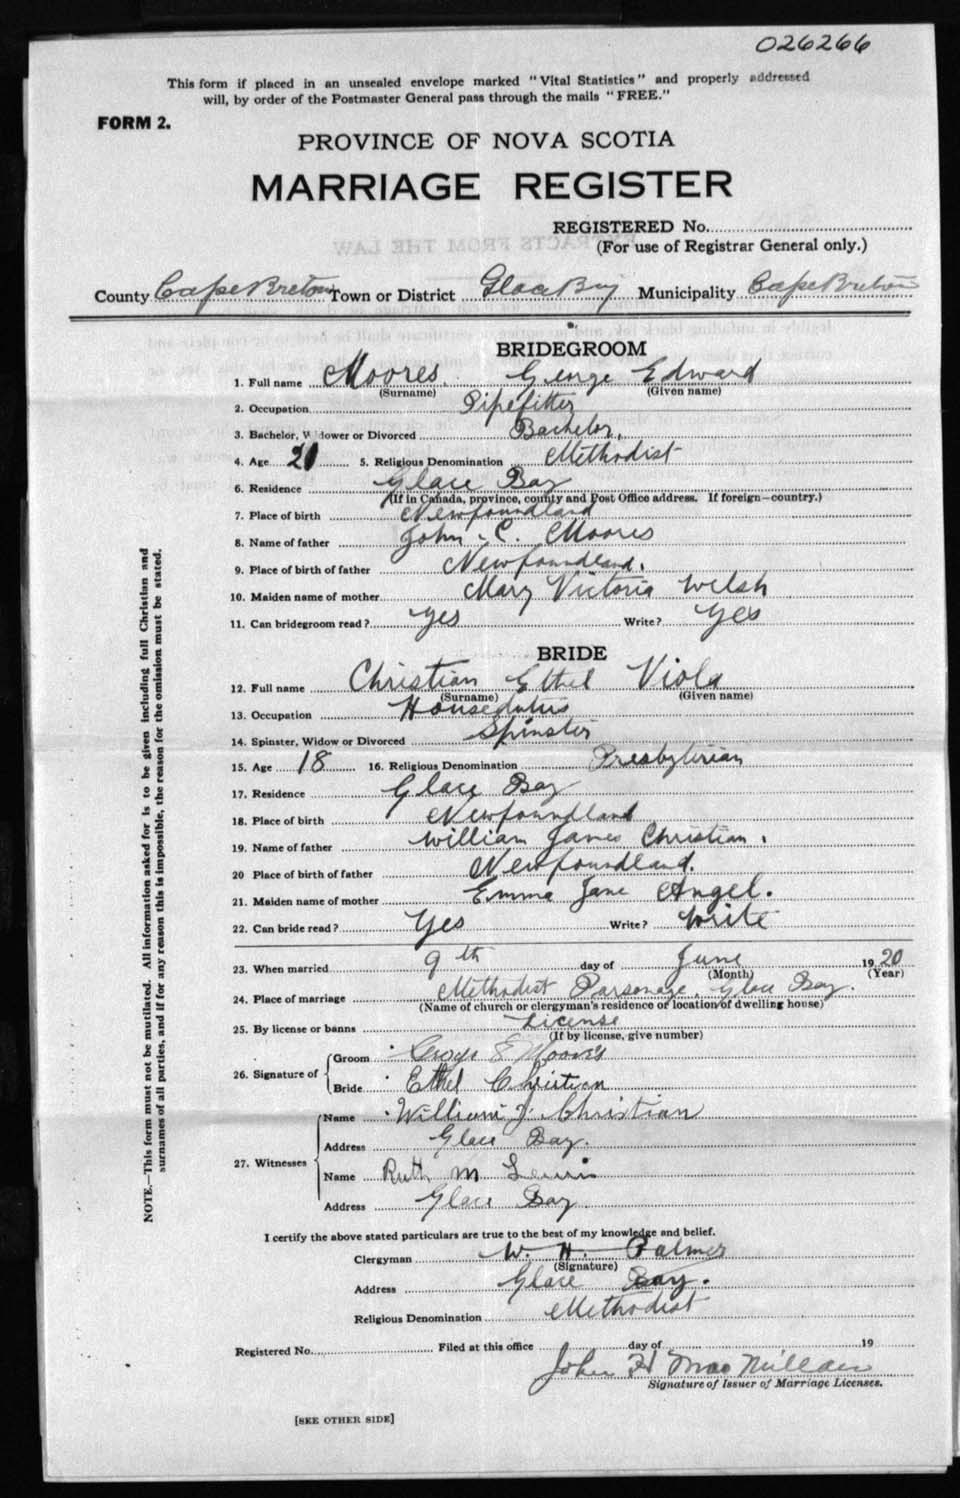 026266
This form if placed in an unsealed envelope marked "Vital Statistics" and properly addressed
will, by order of the Postmaster General pass through the mails "FREE."
FORM 2.
PROVINCE OF NOVA SCOTIA
MARRIAGE REGISTER
REGISTERED No.
(For use of Registrar General only.)
County Cape Breton Town or District Glace Bay Municipality Cape Breton
BRIDEGROOM
1. Full name Moores, George Edward
(Surname) (Given name)
2. Occupation Pipefitter
3. Bachelor, Widower or Divorced Bachelor,
4. Age 20 5. Religious Denomination Methodist
6. Residence Glace Bay
(If in Canada, province, county and Post Office address. If foreign—country.)
7. Place of birth Newfoundland
8. Name of father John C. Moores
9. Place of birth of father Newfoundland.
10. Maiden name of mother Mary Victoria Welsh
11. Can bridegroom read? Yes Write? Yes
BRIDE
12. Full name Christian Ethel Viola
(Surname) (Given name)
13. Occupation Houseduties
14. Spinster, Widow or Divorced Spinster
15. Age 18 16. Religious Denomination Presbyterian
17. Residence Glace Bay
18. Place of birth Newfoundland
19. Name of father William James Christian.
20 Place of birth of father Newfoundland.
21. Maiden name of mother Emma Jane Angel.
22. Can bride read? Yes Write? Write
23. When married 9th day of June 1920
(Month) (Year)
24. Place of marriage Methodist Parsonage, Glace Bay.
(Name of church or clergyman's residence or location of dwelling house)
25. By license or banns License
(If by license, give number)
26. Signature of
Groom George E Moores
Bride Ethel Christian
27. Witnesses
Name William J. Christian
Address Glace Bay.
Name Ruth M Lewis
Address Glace Bay
I certify the above stated particulars are true to the best of my knowledge and belief.
Clergyman W. H. Palmer
(Signature)
Address Glace Bay.
Religious Denomination Methodist
Registered No. Filed at this office day of 19
John H MacMillan
Signature of Issuer of Marriage Licenses.
[SEE OTHER SIDE]
NOTE.—This form must not be mutilated. All information asked for is to be given including full Christian and
surnames of all parties, and if for any reason this is impossible, the reason for the omission must be stated.